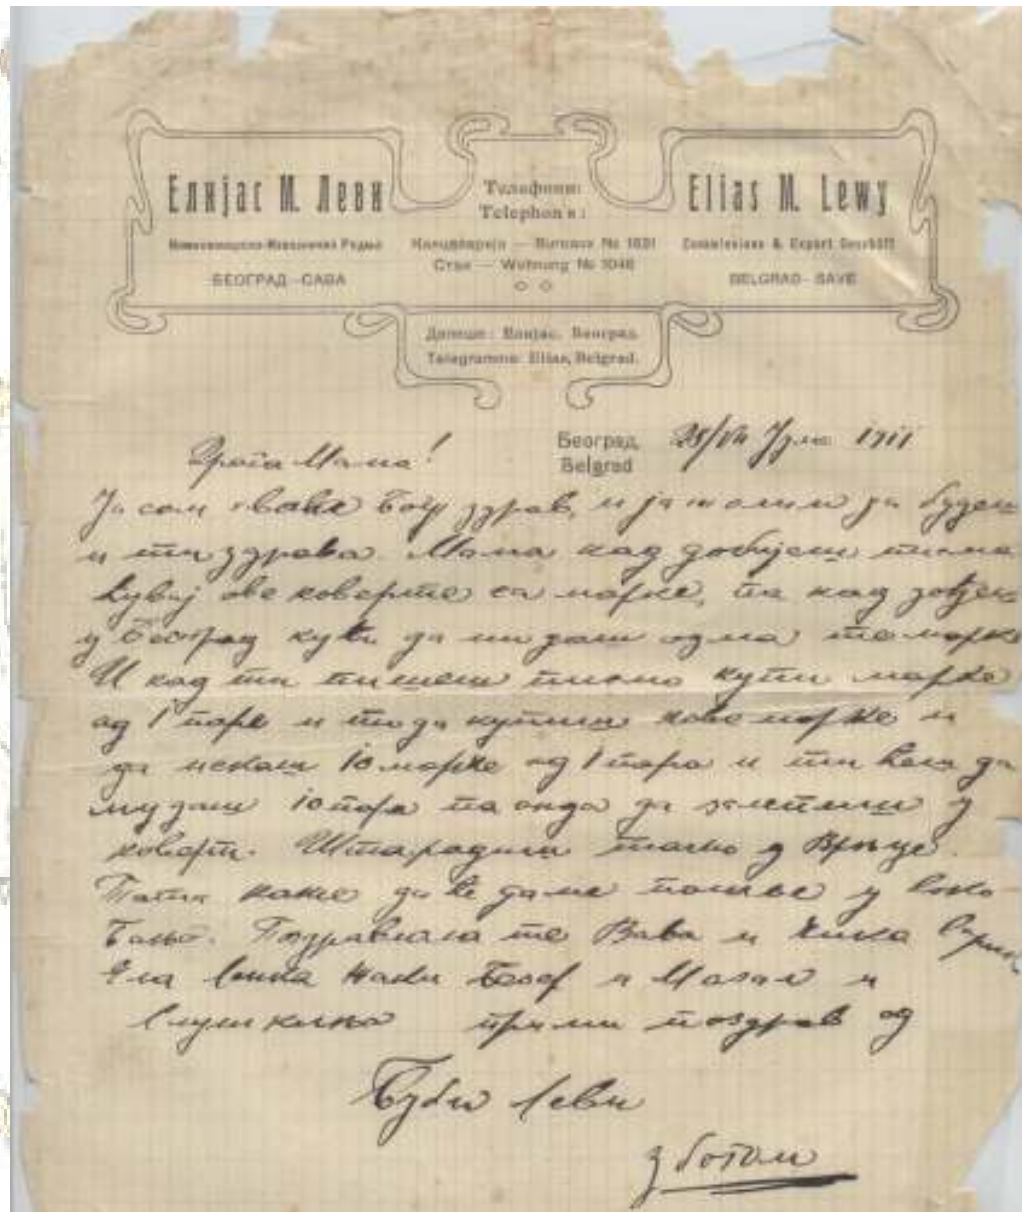 Елијас М. Леви
Комисионарско-Извозничка Радња
БЕОГРАД - САВА
Телефони:
Telephone:
Канцеларија — Bureaux No 1831
Стан — Wohnung No 1046
Elias M. Lewy
Commissions & Export Geschäft
BELGRAD - SAVE
Депеше: Елијас, Београд.
Telegramme: Elias, Belgrad.
Београд,
Belgrad
28/VII Јула 1911
Драга Мама!
Ја сам хвала Богу здрав, и ја желим да будеш
и ти здрава. Мама кад добијеш писма
чувај ове коверте са марке, па кад дођеш
у Београд кући да ми даш одма те марке
И кад ти пишеш писмо купи марке
од 1 паре и то да купиш нове марке и
да искаш 10 марке од 1 пара и ти ћеш да
му даш 10 пара па онда да залепиш у
коверти. Шта радиш тамо у Врњце.
Тата каже да ће да ме пошље у Соко
Бању. Поздравила те Вава и Чика
Ела Наки и Мазал и
Слушкиња прими поздрав од
Буби Леви
З богом